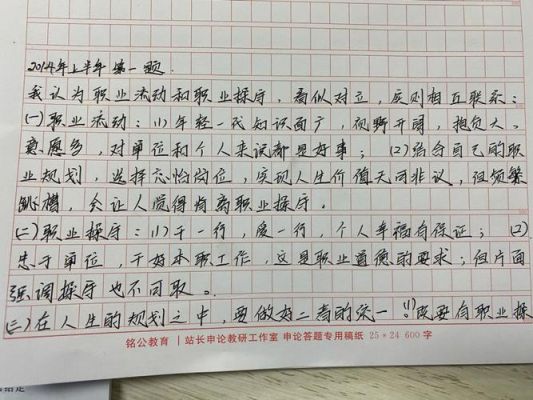 2014年上半年第一题.
我认为职业流动和职业操守，看似对立，实则相互联系：
(一)职业流动：(1)年轻一代知识面广，视野开阔，抱负大，
意愿多，对单位和个人来说都是好事；(2)结合自己的职
业规划，选择心怡岗位，实现人生价值无可非议，但频繁
跳槽，会让人觉得背离职业操守。
(二)职业操守：(1)干一行，爱一行，个人幸福有保证；(2)
忠于单位，干好本职工作，这是职业道德的要求；但片面
强调操守也不可取。
(三)在人生的规划之中，要做好二者的统一(1)既要有职业操
铭公教育 | 站长申论教研工作室 申论答题专用稿纸 25×24 600字